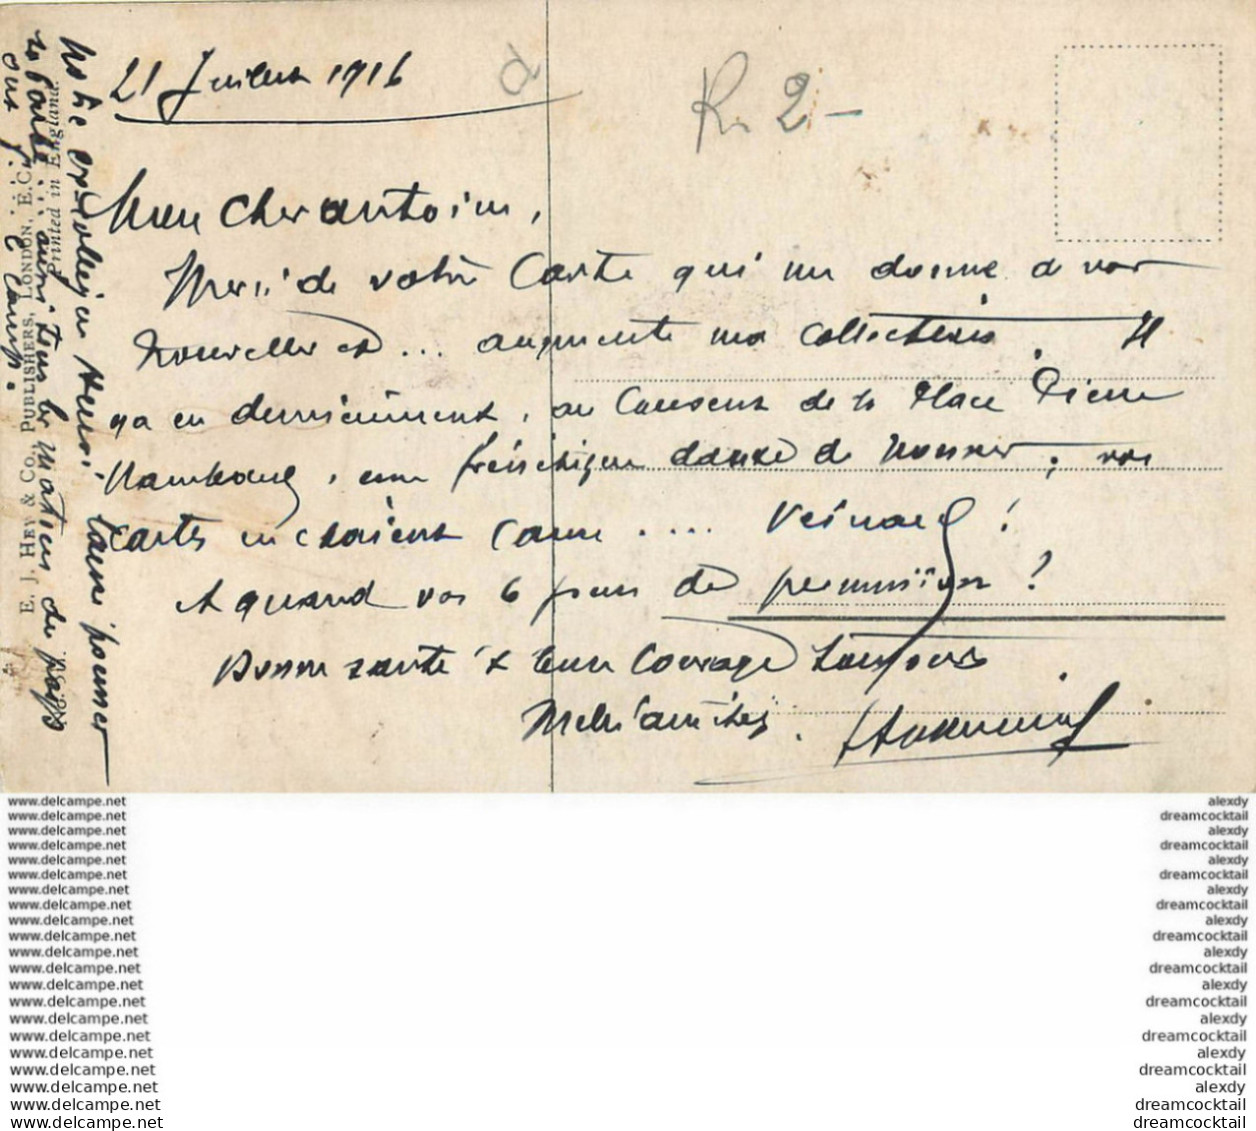 21 Juillet 1916
R. 2 -
Mon Cher antoine,
Merci de votre Carte qui me donne de vos
nouvelles et ... augmente ma collection. Il
y a eu dernièrement, au
une frénétique danse de ; vos
cartes en étaient Cause .... Veinard !
A quand vos 6 jours de permission ?
Bonne santé & bon Courage toujours
Mille amitiés.
notre ex-collègue Henri laisse pousser
sa barbe ... ainsi tous les du pays
ont
Printed in England.
E. J. HEY & CO., PUBLISHERS, LONDON, E.C.
www.delcampe.net
www.delcampe.net
www.delcampe.net
www.delcampe.net
www.delcampe.net
www.delcampe.net
www.delcampe.net
www.delcampe.net
www.delcampe.net
www.delcampe.net
www.delcampe.net
www.delcampe.net
www.delcampe.net
www.delcampe.net
www.delcampe.net
www.delcampe.net
www.delcampe.net
www.delcampe.net
www.delcampe.net
www.delcampe.net
www.delcampe.net
alexdy
dreamcocktail
alexdy
dreamcocktail
alexdy
dreamcocktail
alexdy
dreamcocktail
alexdy
dreamcocktail
alexdy
dreamcocktail
alexdy
dreamcocktail
alexdy
dreamcocktail
alexdy
dreamcocktail
alexdy
dreamcocktail
dreamcocktail